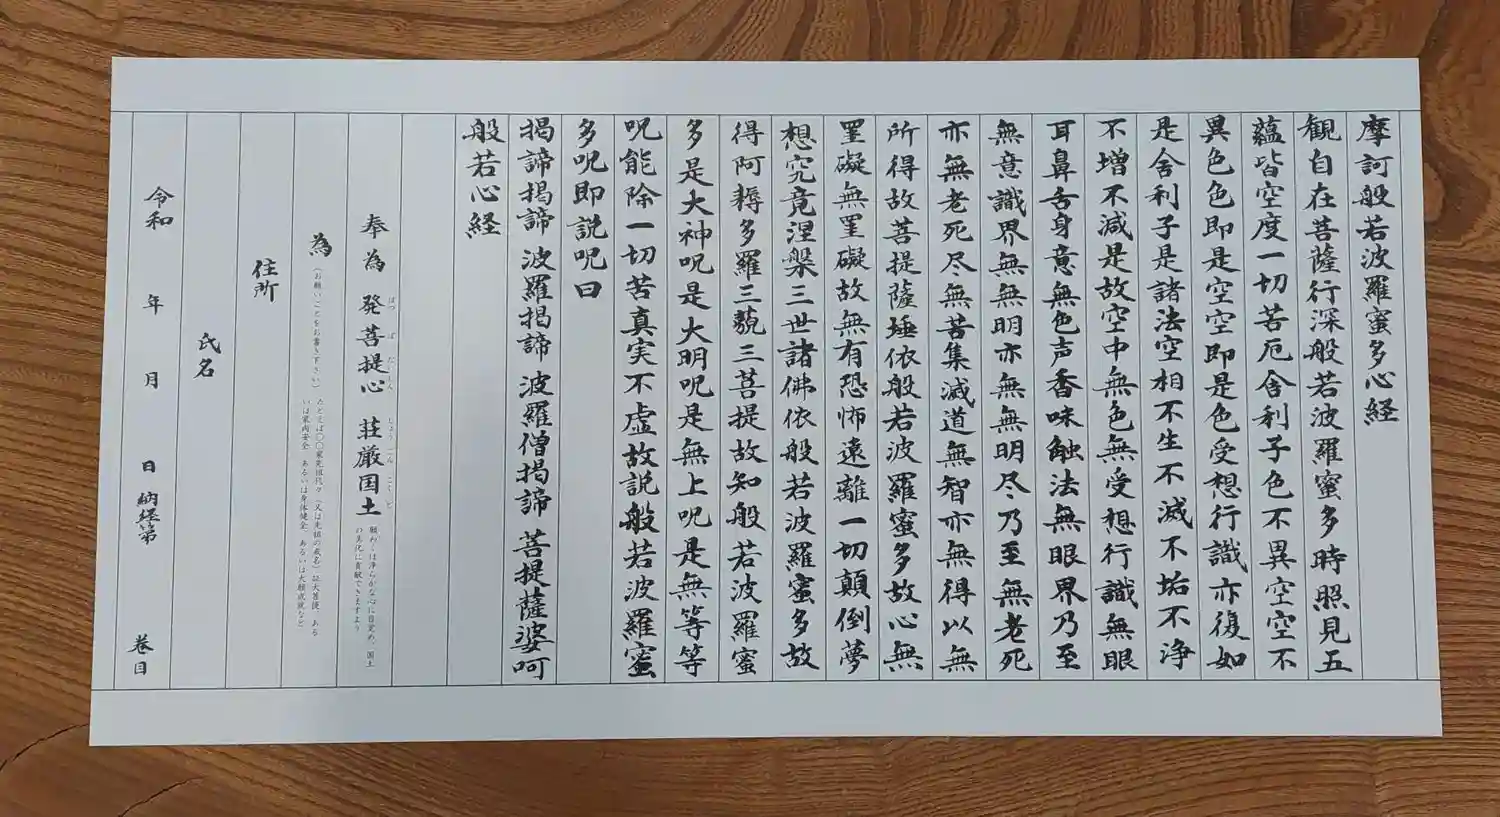 摩訶般若波羅蜜多心経
観自在菩薩行深般若波羅蜜多時照見五
蘊皆空度一切苦厄舎利子色不異空空不
異色色即是空空即是色受想行識亦復如
是舎利子是諸法空相不生不滅不垢不浄
不増不減是故空中無色無受想行識無眼
耳鼻舌身意無色声香味触法無眼界乃至
無意識界無無明亦無無明尽乃至無老死
亦無老死尽無苦集滅道無智亦無得以無
所得故菩提薩埵依般若波羅蜜多故心無
罣礙無罣礙故無有恐怖遠離一切顛倒夢
想究竟涅槃三世諸佛依般若波羅蜜多故
得阿耨多羅三藐三菩提故知般若波羅蜜
多是大神呪是大明呪是無上呪是無等等
呪能除一切苦真実不虚故説般若波羅蜜
多呪即説呪曰
掲諦掲諦 波羅掲諦 波羅僧掲諦 菩提薩婆呵
般若心経
奉為 發菩提心 荘厳国土
ほつ ぼ だいしん しょう ごん こく ど
願わくは浄らかな心に目覚め、国土
の美化に貢献できますよう
為
(お願いごとをお書き下さい)
たとえば〇〇家先祖代々(又は先祖の戒名)証大菩提 ある
いは家内安全 あるいは身体健全 あるいは大願成就など
住所
氏名
令和 年 月 日 納経第 巻目